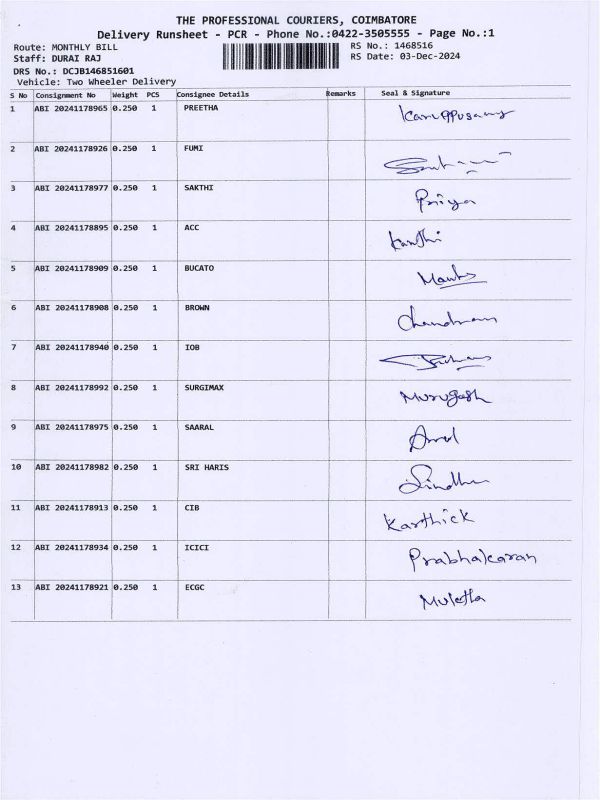 THE PROFESSIONAL COURIERS, COIMBATORE
Delivery Runsheet - PCR - Phone No.:0422-3505555 - Page No.:1
Route: MONTHLY BILL RS No.: 1468516
Staff: DURAI RAJ RS Date: 03-Dec-2024
DRS No.: DCJB146851601
Vehicle: Two Wheeler Delivery
S No Consignment No Weight PCS Consignee Details Remarks Seal & Signature
1 ABI 20241178965 0.250 1 PREETHA Karuppusamy
2 ABI 20241178926 0.250 1 FUMI
3 ABI 20241178977 0.250 1 SAKTHI Priya
4 ABI 20241178895 0.250 1 ACC
5 ABI 20241178909 0.250 1 BUCATO
6 ABI 20241178908 0.250 1 BROWN
7 ABI 20241178940 0.250 1 IOB
8 ABI 20241178992 0.250 1 SURGIMAX Murugesh
9 ABI 20241178975 0.250 1 SAARAL
10 ABI 20241178982 0.250 1 SRI HARIS Sindhu
11 ABI 20241178913 0.250 1 CIB Karthick
12 ABI 20241178934 0.250 1 ICICI Prabhakaran
13 ABI 20241178921 0.250 1 ECGC